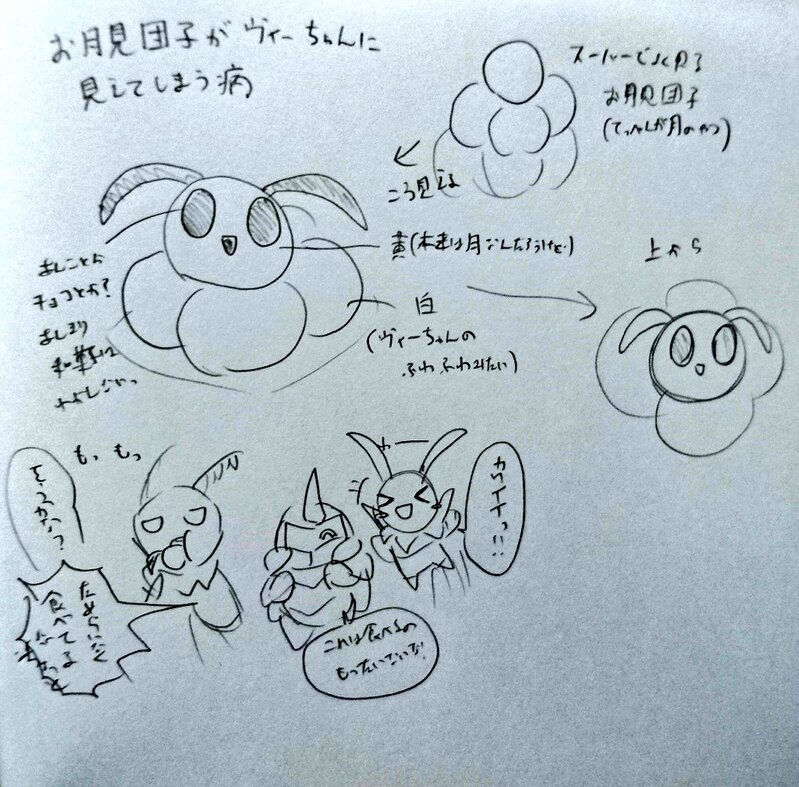 お月見団子がヴィーちゃんに
見えてしまう病
スーパーでよく見る
お月見団子
(てっぺんが月のやつ)
こう見える
黄(本来は月なんだろうけど)
上から
あんことか
チョコとか?
あんまり
和菓子に
白
(ヴィーちゃんの
ふわふわみたい)
もっ もっ
そうかな?
ためらいなく
食べてる
わー
カワイイっ!!
これは食べるの
もったいないな!